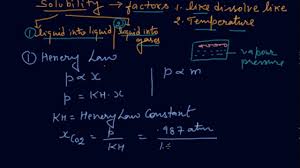 Solubility → factors 1. like dissolve like
2. Temperature
① liquid into liquid ② liquid into gases
vapour pressure
① Henery Law
p ∝ x | p ∝ m
p = KH . x
KH = Henery Law Constant
x CO2 = p / KH = .987 atm